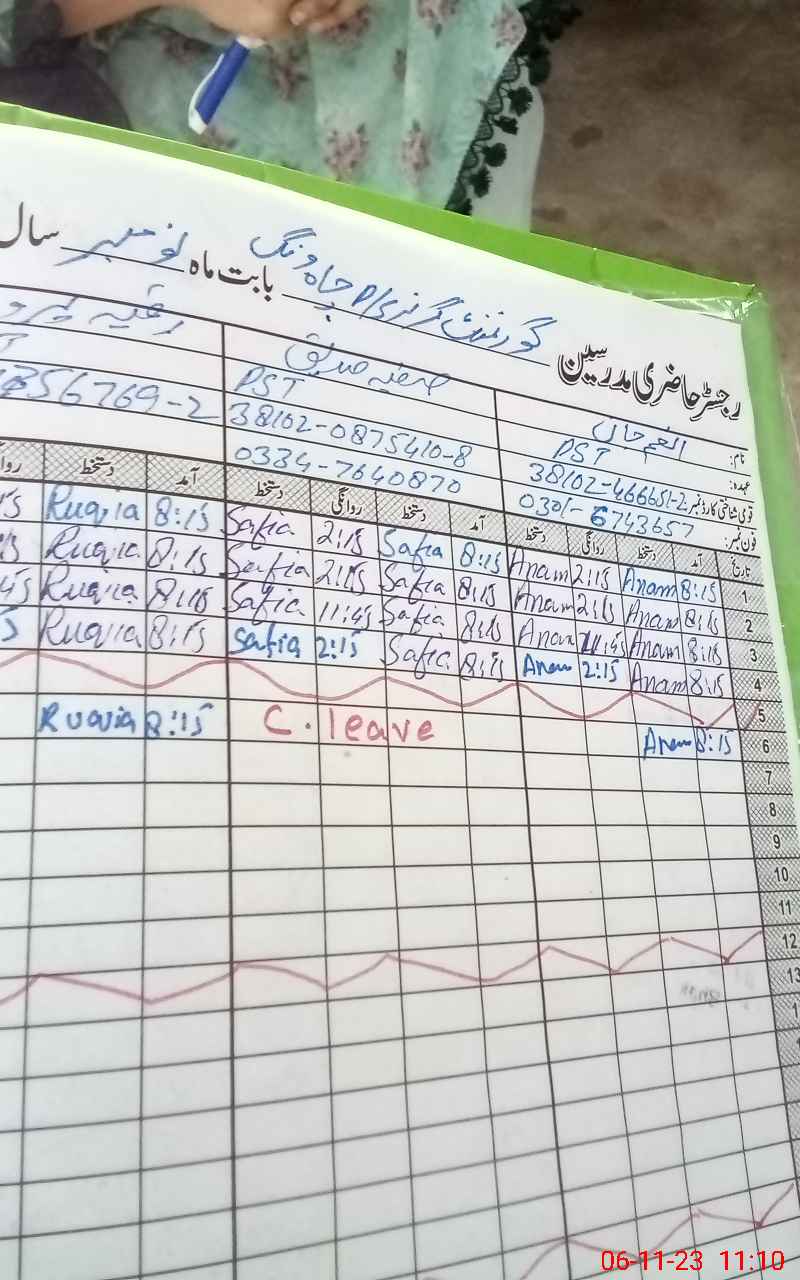 رجسٹر حاضری مدرسین گورنمنٹ گرلز P/S چاہ ونگ بابت ماہ نومبر سال
نام: انعم جان صفیہ صدیق رقیہ
عہدہ: PST PST
قومی شناختی کارڈ نمبر: 38102-0875410-8 56769-2
فون نمبر: 0301-6743657 0334-7640870
تاریخ آمد دستخط روانگی دستخط آمد دستخط روانگی دستخط آمد دستخط
1 8:15 Anam 2:15 Anam 8:15 Safia 2:15 Safia 8:15 Ruqia
2 8:15 Anam 2:15 Anam 8:15 Safia 2:15 Safia 8:15 Ruqia
3 8:15 Anam 11:45 Anam 8:15 Safia 11:45 Safia 8:15 Ruqia
4 8:15 Anam 2:15 Anam 8:15 Safia 2:15 Safia 8:15 Ruqia
5
6 8:15 Anam C. leave 8:15 Ruqia
7
8
9
10
11
12
13
06-11-23 11:10